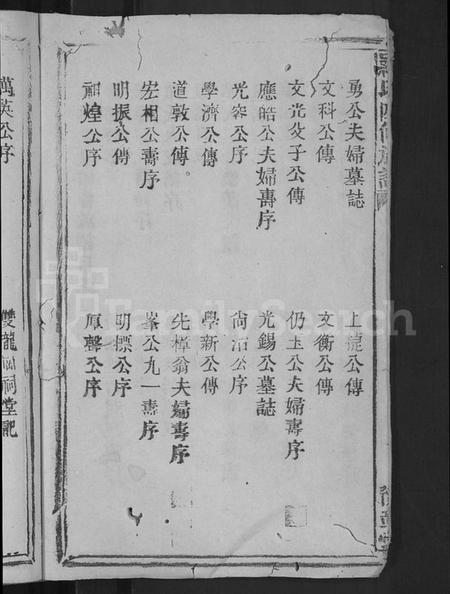 勇公夫婦墓誌
上龍公傳
文科公傳
文衡公傳
文光父子公傳
仍玉公夫婦壽序
應皓公夫婦壽序
光錫公墓誌
光容公序
尙治公序
學濟公傳
學新公傳
道敦公傳。
先樟翁夫婦壽序
宏相公壽序
峯公九一壽序
明振公傳
明標公序
祖煌公序
厚聲公序
萬英公序
雙龍祠堂記
FamilySearch